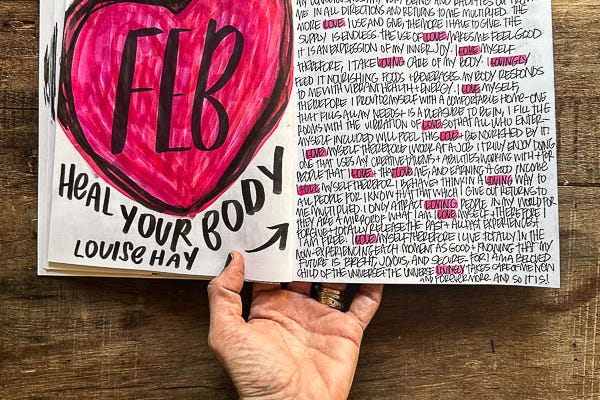 FEB
HEAL YOUR BODY
LOUISE HAY
ME IN ALL DIRECTIONS AND RETURNS TO ME MULTIPLIED. THE
MORE LOVE I USE AND GIVE, THE MORE I HAVE TO GIVE. THE
SUPPLY IS ENDLESS. THE USE OF LOVE MAKES ME FEEL GOOD
IT IS AN EXPRESSION OF MY INNER JOY. I LOVE MYSELF
THEREFORE, I TAKE LOVING CARE OF MY BODY. I LOVINGLY
FEED IT NOURISHING FOODS + BEVERAGES. MY BODY RESPONDS
TO ME WITH VIBRANT HEALTH + ENERGY. I LOVE MYSELF,
THEREFORE I PROVIDE MYSELF WITH A COMFORTABLE HOME - ONE
THAT FILLS ALL MY NEEDS + IS A PLEASURE TO BE IN. I FILL THE
ROOMS WITH THE VIBRATION OF LOVE SO THAT ALL WHO ENTER -
MYSELF INCLUDED WILL FEEL THIS LOVE + BE NOURISHED BY IT.
I LOVE MYSELF THEREFORE I WORK AT A JOB I TRULY ENJOY DOING
ONE THAT USES MY CREATIVE TALENTS + ABILITIES WORKING WITH + FOR
PEOPLE THAT I LOVE + THAT LOVE ME, AND EARNING A GOOD INCOME
I LOVE MYSELF THEREFORE I BEHAVE + THINK IN A LOVING WAY TO
ALL PEOPLE FOR I KNOW THAT THAT WHICH I GIVE OUT RETURNS TO
ME MULTIPLIED. I ONLY ATTRACT LOVING PEOPLE IN MY WORLD FOR
THEY ARE A MIRROR OF WHAT I AM. I LOVE MYSELF + THEREFORE I
FORGIVE + TOTALLY RELEASE THE PAST + ALL PAST EXPERIENCES +
I AM FREE. I LOVE MYSELF THEREFORE I LIVE TOTALLY IN THE
NOW - EXPERIENCING EACH MOMENT AS GOOD + KNOWING THAT MY
FUTURE IS BRIGHT, JOYOUS, AND SECURE - FOR I AM A BELOVED
CHILD OF THE UNIVERSE + THE UNIVERSE LOVINGLY TAKES CARE OF ME NOW
AND FOREVERMORE. AND SO IT IS!